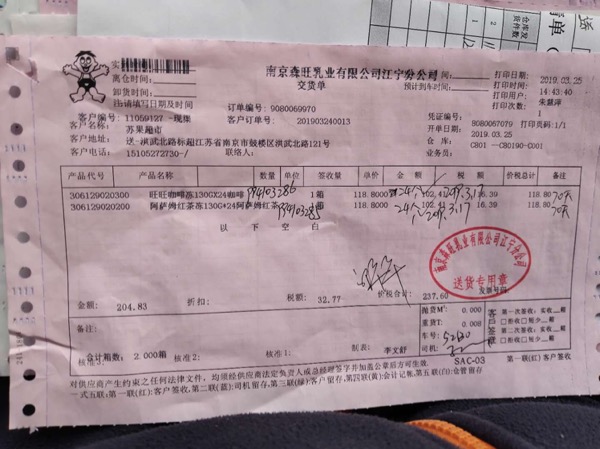 南京森旺乳业有限公司江宁分公司
交货单
离仓时间:
卸货时间:
注:请填写日期及时间
预计到车时间:
打印日期: 2019.03.25
打印时间: 14:43:40
打印用户: 朱慧萍
打印次数: 1
订单编号: 9080069970
客户编号: 11059127
客户订单号: 201903240013
凭证编号: 8080067079 打印页码:1/1
苏果超市
开单日期: 2019.03.25
客户地址: 送-滇武北路标超江苏省南京市鼓楼区滇武北路121号
仓 库: C801 --C80190-C001
客户电话: 15105272730-/
联系人:
产品代号 产品名称 数量 单位 签收量 单价 金 额 税 额 价税总计 备注
306129020300 旺旺咖啡冻130GX24咖啡 1箱 118.8000 102.41 16.39 118.80
306129020200 阿萨姆红茶冻130G*24阿萨姆红茶 1箱 118.8000 102.41 16.39 118.80
以 下 空 白
南京森旺乳业有限公司江宁分公司
送货专用章
金额: 204.83 折扣: 税额: 32.77 价税合计: 237.60 发票号码
备注:
抛货M³: 0.000
重货T: 0.008
车号:
司机:
第一次签收: 实收__箱
□拒收□短少__箱
第二次签收: 实收__箱
□拒收□短少__箱
合计箱数: 2.000箱 核准2: 核准1: 制表: 李文舒
核准3:
SAC-03 第一联(红) 客户签收
对供应商产生约束之任何法律文件，均须经供应商法定负责人或总经理签字并加盖公章后方可生效.
一式五联:第一联(红):客户签收,第二联(蓝):司机留存,第三联(绿):客户留存,第四联(黄):会计记帐,第五联(白):仓管留存